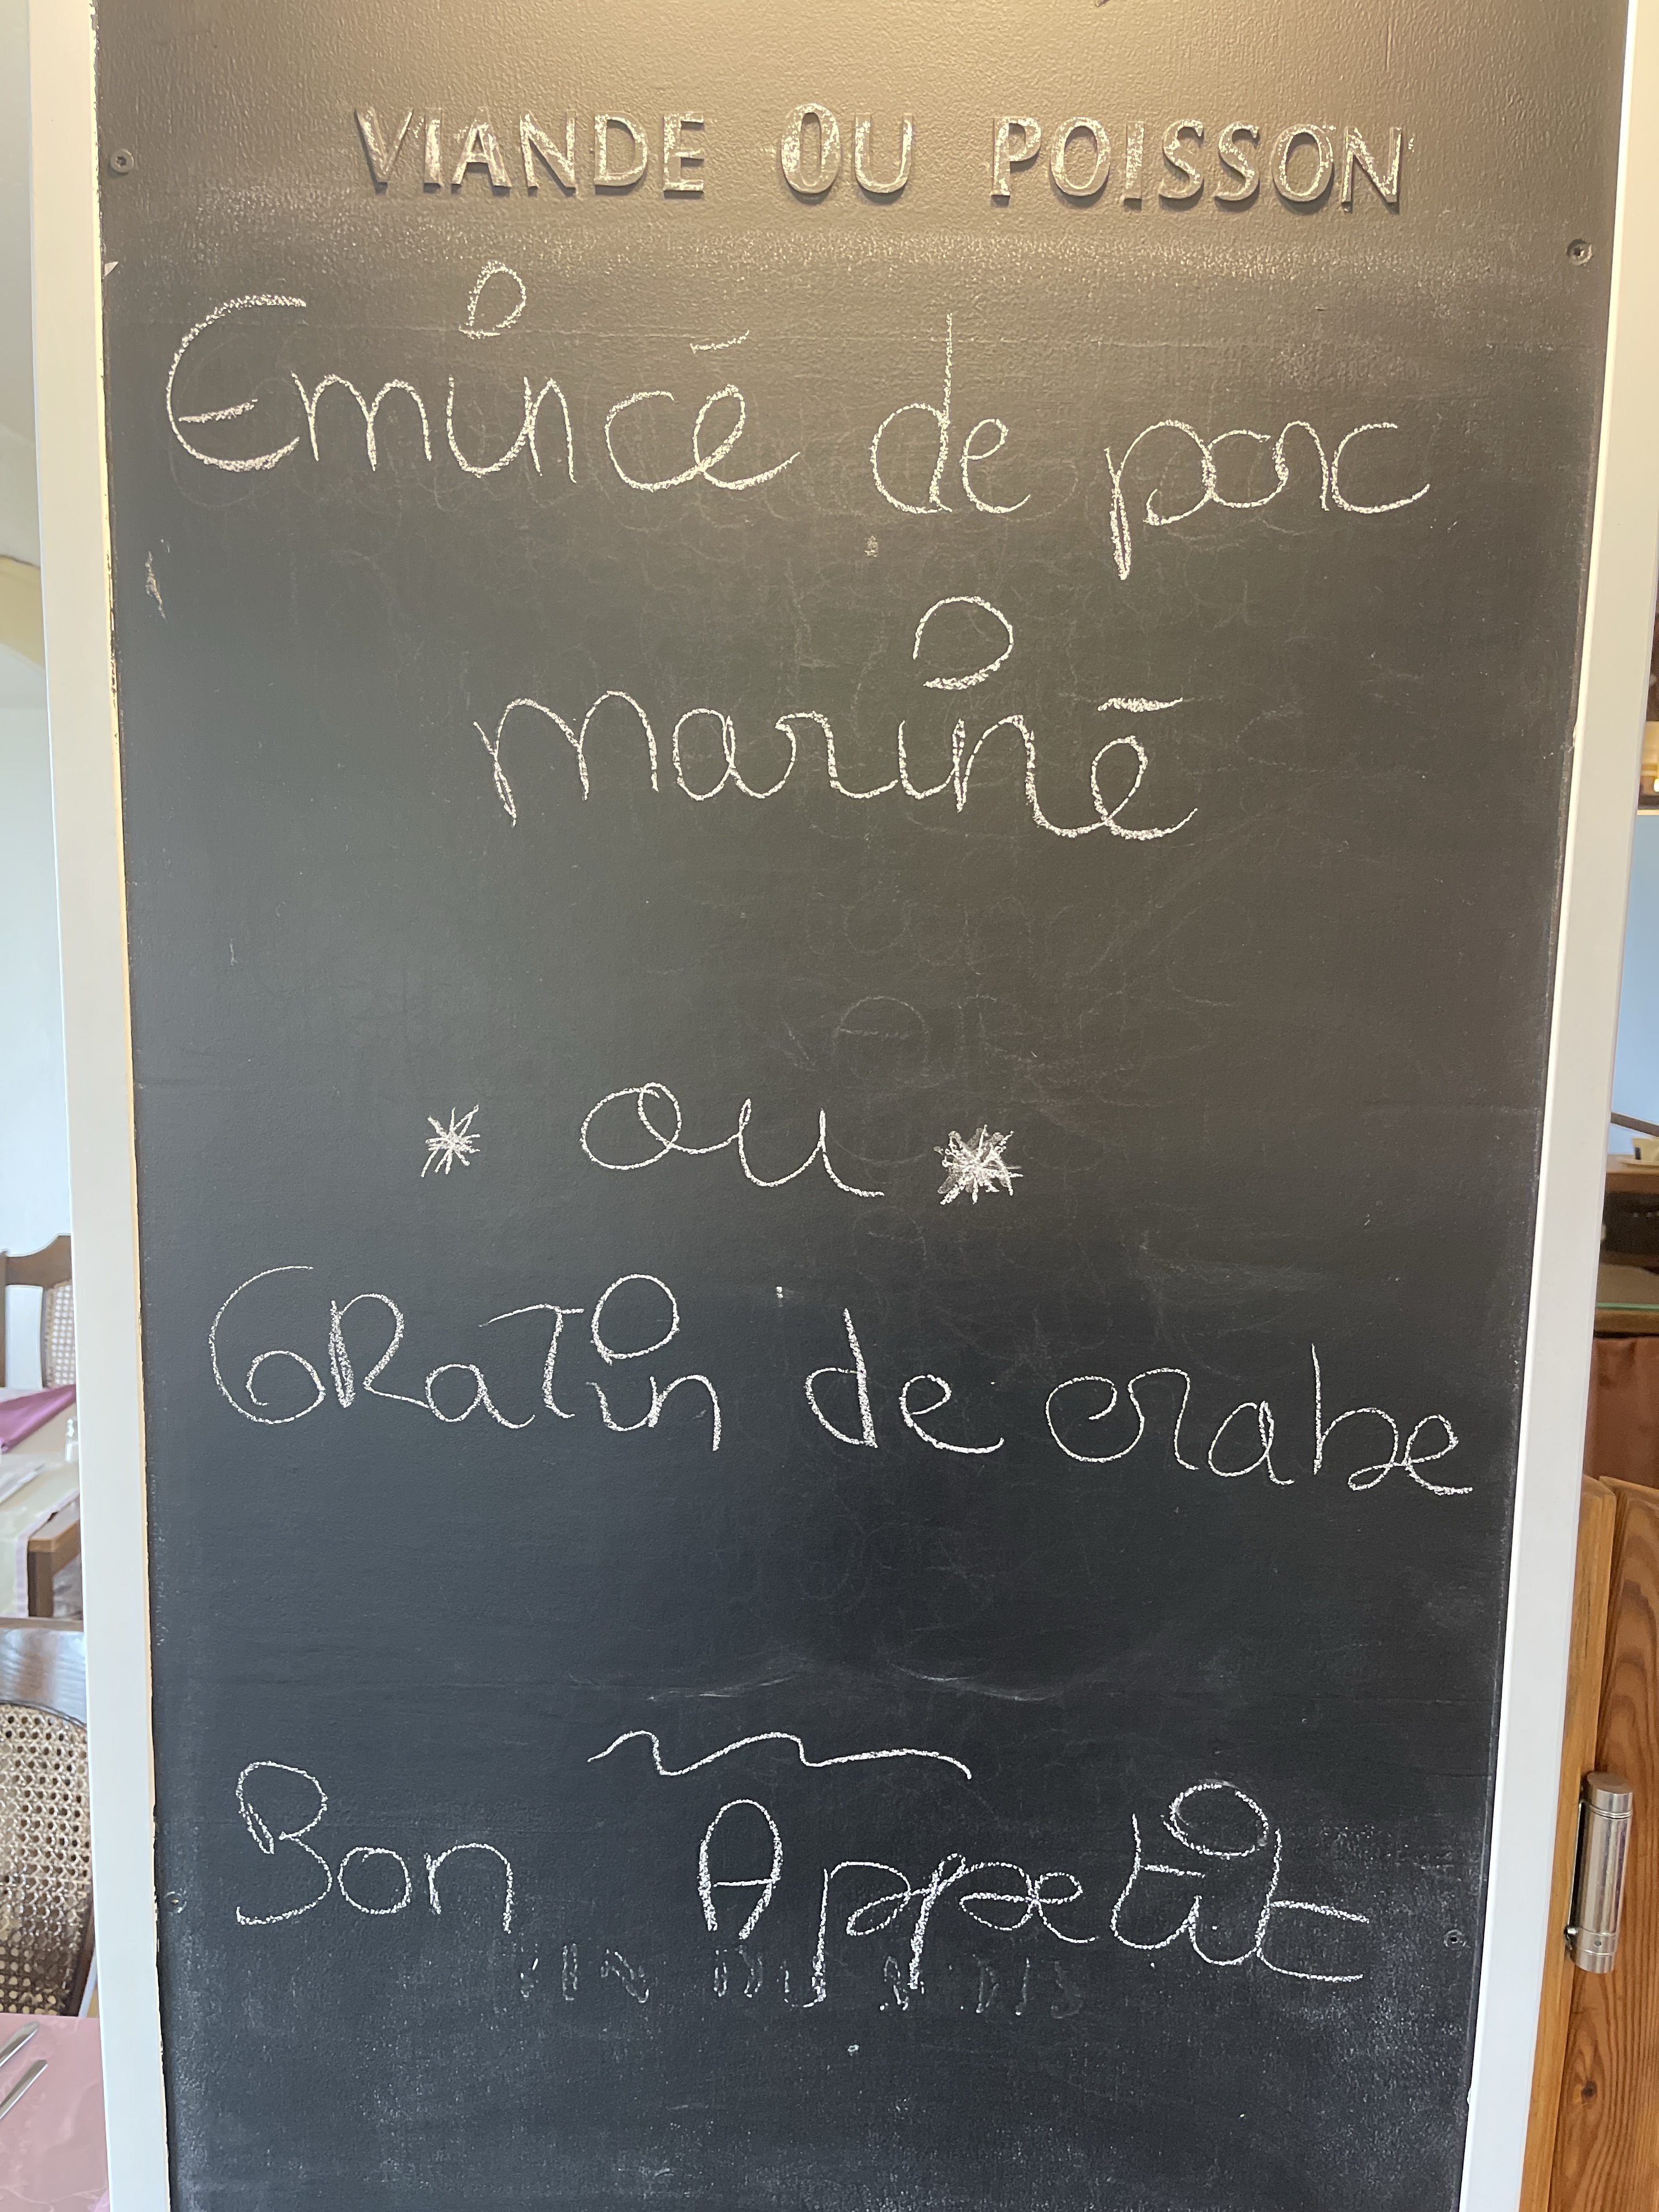 VIANDE OU POISSON
Emincé de porc
mariné
* ou *
GRaTin de crabe
Bon Appetit